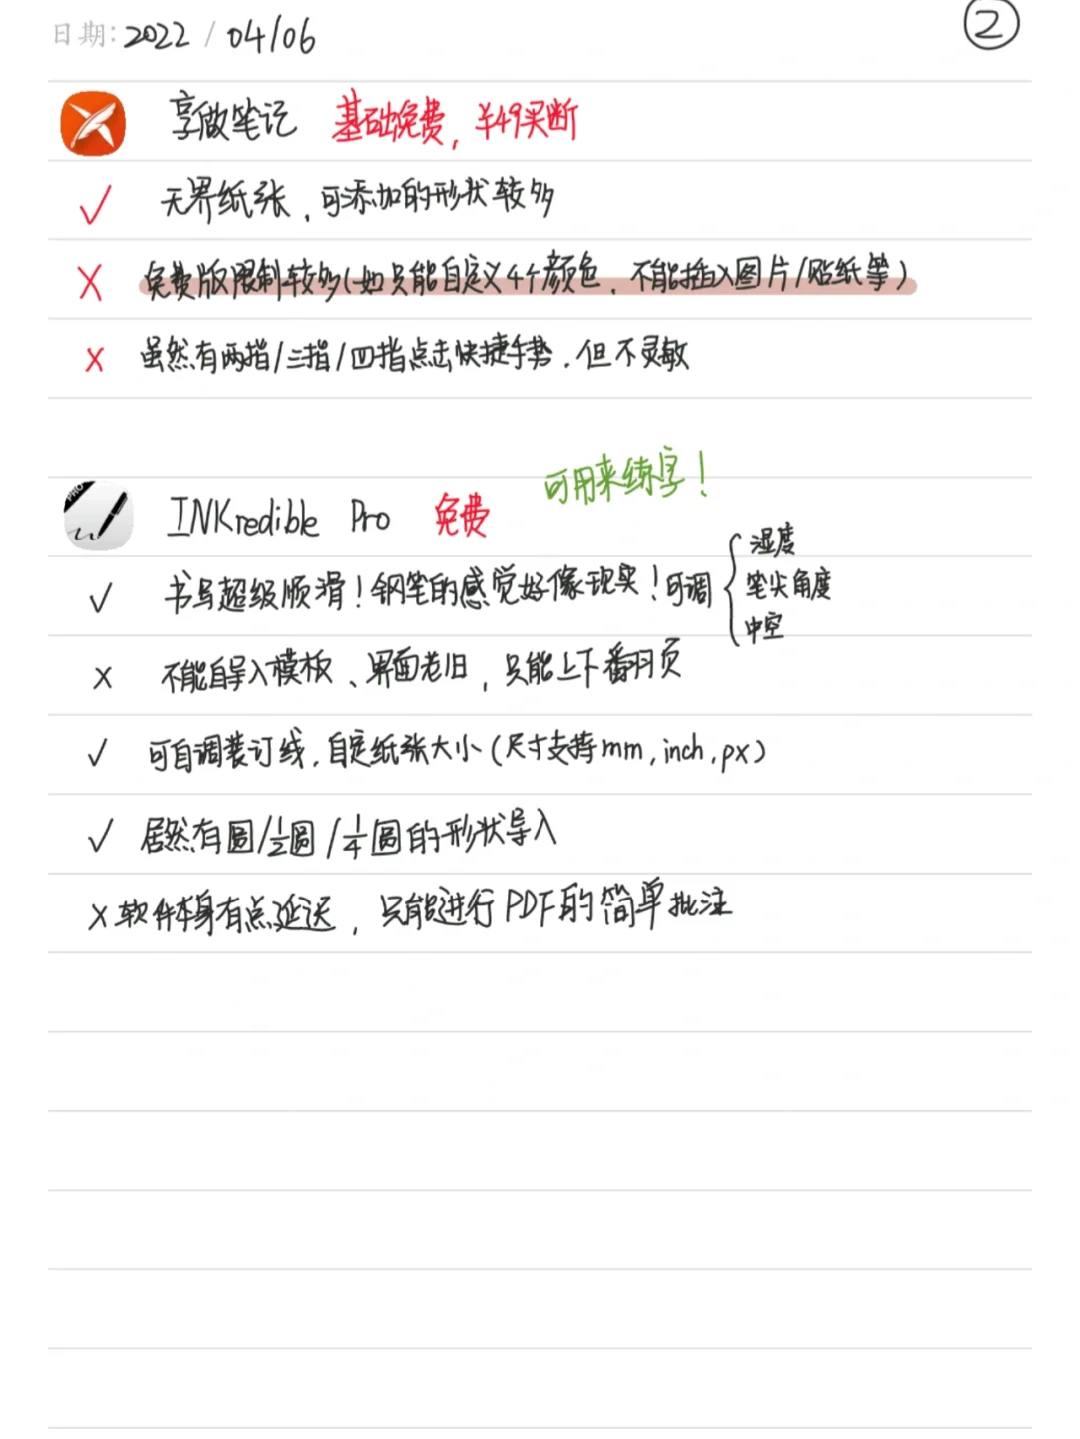 日期: 2022 / 04/06
②
享做笔记 基础免费, ¥49买断
✓ 无界纸张, 可添加的形状较多
✗ 免费版限制较多(如只能自定义4个颜色, 不能插入图片/贴纸等)
✗ 虽然有两指/三指/四指点击快捷手势, 但不灵敏
可用来练字!
PRO
INKredible Pro 免费
✓ 书写超级顺滑! 钢笔的感觉好像现实! 可调 { 湿度
笔尖角度
中空
✗ 不能自导入模板、界面老旧, 只能上下翻页
✓ 可自调装订线, 自定纸张大小(尺寸支持mm, inch, px)
✓ 居然有圆/½圆/¼圆的形状导入
✗ 软件本身有点延迟, 只能进行PDF的简单批注